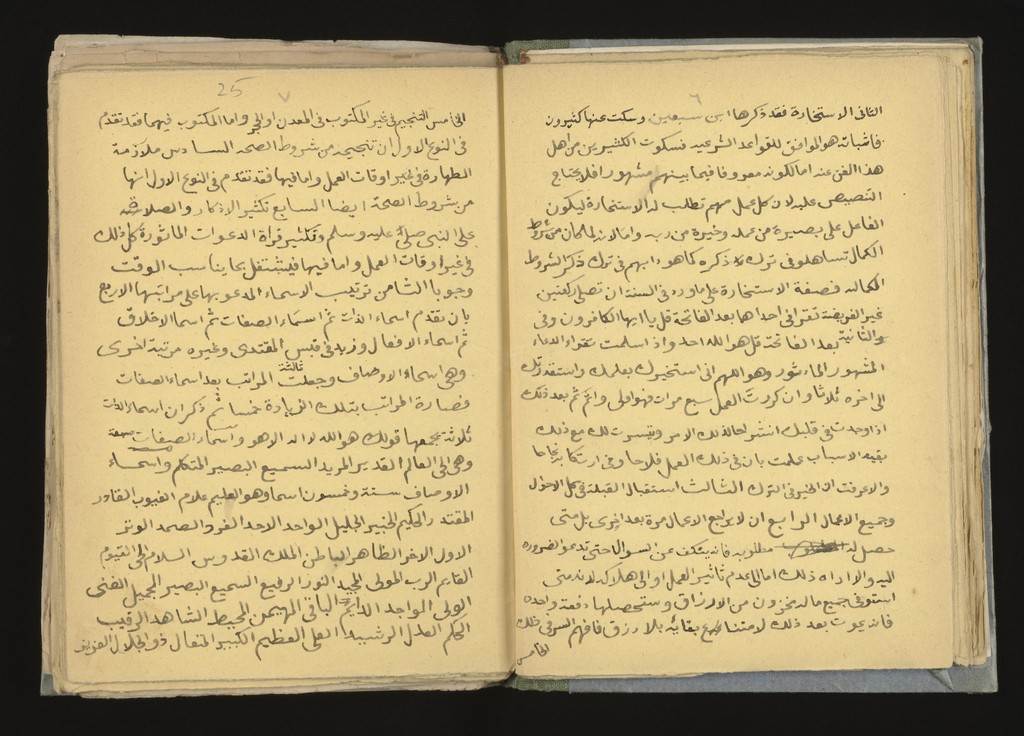 ٦
الثانى الاستخارة فقد ذكرها ابن سبعين وسكت عنها كثيرون
فاثباته هو الموافق للقواعد الشرعيه فسكوت الكثيرين من اهل
هذا الفن عنه اما لكونه معروفا فيما بينهم مشهورا فلا يحتاج
التنصيص عليه لان كل عمل مهم تطلب له الاستخارة ليكون
الفاعل على بصيرة من عمله وخيرة من ربه واما لانه لما كان من شروط
الكمال تساهلوا فى ترك ذكره كما هو دابهم فى ترك ذكر الشروط
الكماليه فصفة الاستخارة على ما ورد فى السنة ان تصلى ركعتين
غير الفريضة تقرا فى احداها بعد الفاتحة قل يا ايها الكافرون وفى
الثانية بعد الفاتحة قل هو الله احد واذا سلمت تقراء الدعاء
المشهور الماءثور وهو اللهم انى استخيرك بعلمك واستقدرتك
الى اخره ثلاثا وان كررت العمل سبع مرات فهو اولى واتم ثم بعد ذلك
اذا وجدت فى قلبك انشراحا لذلك الامر وتيسرت لك مع ذلك
بقيه الاسباب علمت بان فى ذلك العمل فلاحا وفى ارتكابه نجاحا
والا عرفت ان الخير فى الترك الثالث استقبال القبلة فى كل الاحوال
وجميع الاعمال الرابع ان لا يراجع الاعمال مرة بعد اخرى بل متى
حصل له مطلوبه فانه يتكف عن السوال حتى تدعو الضروره
اليه والا اداه ذلك اما الى عدم تاثير العمل او الى هلاكه لانه متى
استوفى جميع ماله مخزون من الارزاق وستحصلها دفعة واحده
فانه يموت بعد ذلك لامتناع بقائه بلا رزق فافهم السر فى ذلك
الخامس
25 ٧
الخامس التنجيم فى غير المكتوب فى المعدن او الحجر واما المكتوب فيهما فقد تقدم
فى النوع الاول ان تنجيمه من شروط الصحه السادس ملازمة
الطهارة فى غير اوقات العمل واما فيها فقد تقدم فى النوع الاول انها
من شروط الصحة ايضا السابع تكثير الاذكار والصلاة
على النبى صلى الله عليه وسلم وتكثير قراة الدعوات الماثورة كل ذلك
فى غير اوقات العمل واما فيها فيشتغل بما يناسب الوقت
وجوبا الثامن ترتيب الاسماء المدعو بها على مراتبها الاربع
بان تقدم اسماء الذات ثم اسماء الصفات ثم اسما الاخلاق
ثم اسماء الافعال وزيد فى قبس المقتدى وغيره مرتبة اخرى
وهى اسماء الاوصاف وجعلت ثالثة المراتب بعد اسماء الصفات
فصارة المراتب بتلك الزيادة خمسا ثم ذكر ان اسماء الذات
ثلاثة يجمعها قولك هو الله لا اله الا هو واسماء الصفات سبعة
وهى الحى العالم القدير المريد السميع البصير المتكلم واسماء
الاوصاف ستة وخمسون اسما وهو العليم علام الغيوب القادر
المقتدر الحكيم الخبير الجليل الواحد الاحد الفرد الصمد الوتر
الاول الاخر الظاهر الباطن الملك القدوس السلام الحى القيوم
القايم الرب المولى المجيد النور الرفيع السميع البصير الجميل الغنى
الولى الواجد الدايم الباقى المهيمن المحيط الشاهد الرقيب
الحكم العدل الرشيد العلى العظيم الكبير المتعال ذو الجلال العزيز